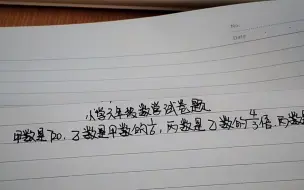 小学六年级数学试卷题
甲数是720，乙数是甲数的1/6，丙数是乙数的4/3倍，丙数是